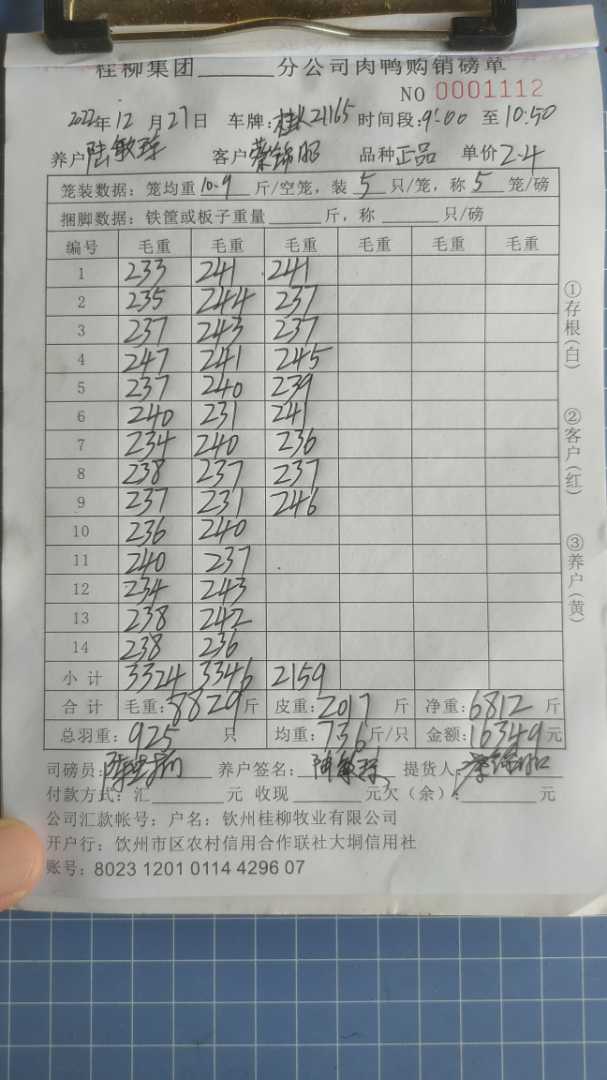 桂柳集团______分公司肉鸭购销磅单
NO 0001112
2022年12月27日 车牌:桂K21165 时间段:9:00 至 10:50
养户 陆敏 客户 品种 正品 单价 2.4
笼装数据:笼均重 10.9 斤/空笼,装 5 只/笼,称 5 笼/磅
捆脚数据:铁筐或板子重量______斤,称______只/磅
编号 毛重 毛重 毛重 毛重 毛重 毛重
1 233 241 241
2 235 244 237
3 237 243 237
4 247 241 245
5 237 240 239
6 240 231 241
7 234 240 236
8 238 237 237
9 237 231 246
10 236 240
11 240 237
12 234 243
13 238 242
14 238 236
小计 3324 3346 2159
合计 毛重:8829斤 皮重:2017斤 净重:6812斤
总羽重:925只 均重:736斤/只 金额:16349元
司磅员: 养户签名:陆敏 提货人:
付款方式:汇______元 收现______元欠(余):______元
公司汇款帐号:户名:钦州桂柳牧业有限公司
开户行:钦州市区农村信用合作联社大垌信用社
账号:8023 1201 0114 4296 07
①存根(白)
②客户(红)
③养户(黄)